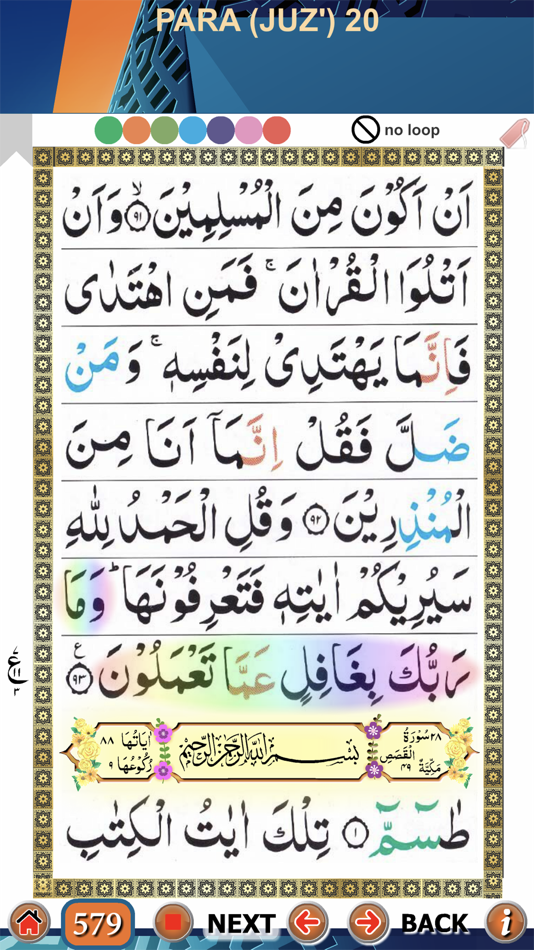 PARA (JUZ') 20
no loop
اَنْ اَكُوْنَ مِنَ الْمُسْلِمِيْنَ ۙ﴿۹۱﴾ وَاَنْ
اَتْلُوَا الْقُرْاٰنَ ۚ فَمَنِ اهْتَدٰى
فَاِنَّمَا يَهْتَدِىْ لِنَفْسِهٖ ۚ وَمَنْ
ضَلَّ فَقُلْ اِنَّمَاۤ اَنَا مِنَ
الْمُنْذِرِيْنَ ﴿۹۲﴾ وَقُلِ الْحَمْدُ لِلّٰهِ
سَيُرِيْكُمْ اٰيٰتِهٖ فَتَعْرِفُوْنَهَا ؕ وَمَا
رَبُّكَ بِغَافِلٍ عَمَّا تَعْمَلُوْنَ ﴿۹۳﴾ ع
سُوْرَةُ ۲۸ الْقَصَصِ مَكِّيَّةٌ ۴۹
بِسْمِ اللّٰهِ الرَّحْمٰنِ الرَّحِيْمِ
اٰيَاتُهَا ۸۸ رُكُوْعُهَا ۹
طٰسٓمّٓ ﴿۱﴾ تِلْكَ اٰيٰتُ الْكِتٰبِ
579 NEXT BACK i